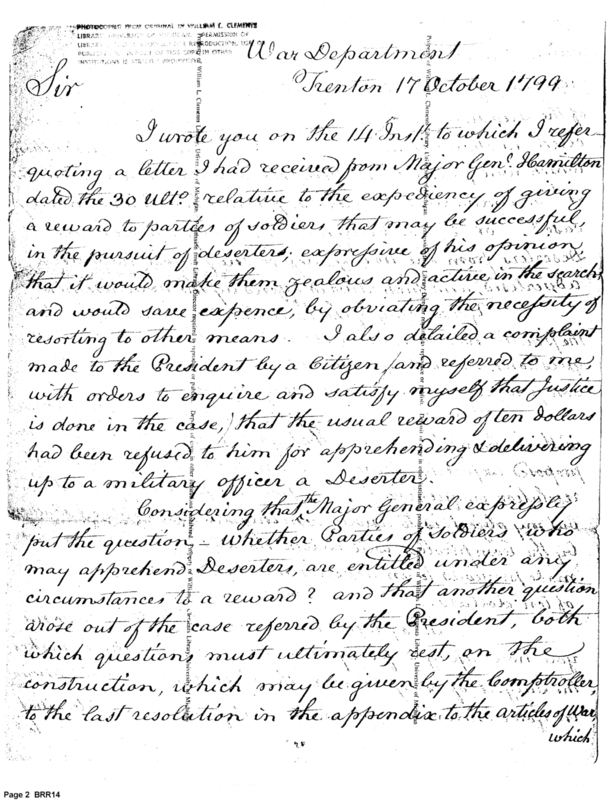 PHOTOCOPIED FROM ORIGINAL IN WILLIAM L. CLEMENTS
LIBRARY, UNIVERSITY OF MICHIGAN. PERMISSION OF
War Department
Trenton 17 October 1799
Sir
I wrote you on the 14 Inst. to which I refer
quoting a letter I had received from Major Genl. Hamilton
dated the 30 Ulto. relative to the expediency of giving
a reward to parties of soldiers that may be successful,
in the pursuit of deserters; expressive of his opinion
that it would make them zealous and active in the search,
and would save expence, by obviating the necessity of
resorting to other means. I also detailed a complaint
made to the President by a Citizen, (and referred to me,
with orders to enquire and satisfy myself that Justice
is done in the case,) that the usual reward of ten dollars
had been refused to him for apprehending & delivering
up to a military officer a Deserter.
Considering that the Major General expressly
put the question – whether Parties of soldiers, who
may apprehend Deserters, are entitled under any
circumstances to a reward? and that another question
arose out of the case referred by the President, both
which questions must ultimately rest, on the
construction, which may be given by the Comptroller,
to the last resolution in the appendix to the articles of War,
which
Page 2 BRR14